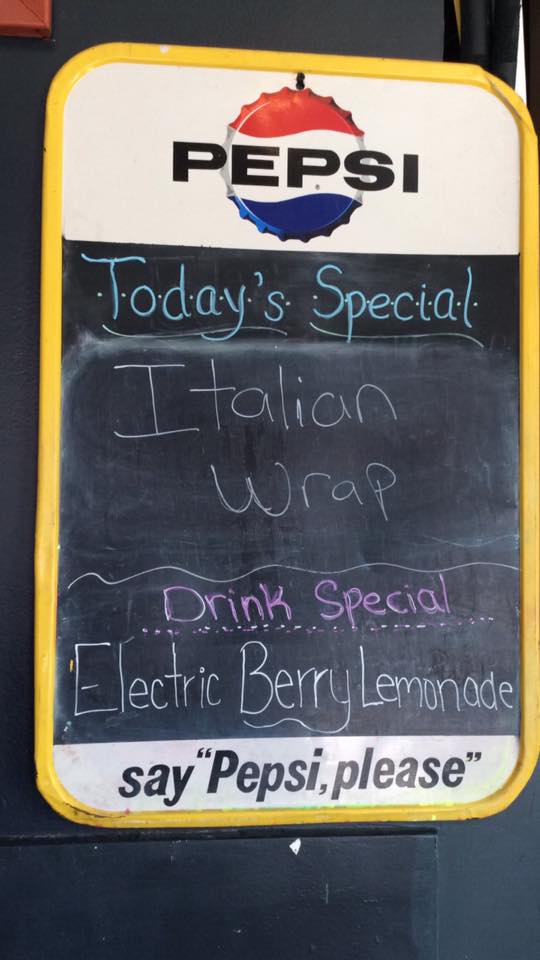 PEPSI
Today's Special
Italian
Wrap
Drink Special
Electric Berry Lemonade
say "Pepsi, please"